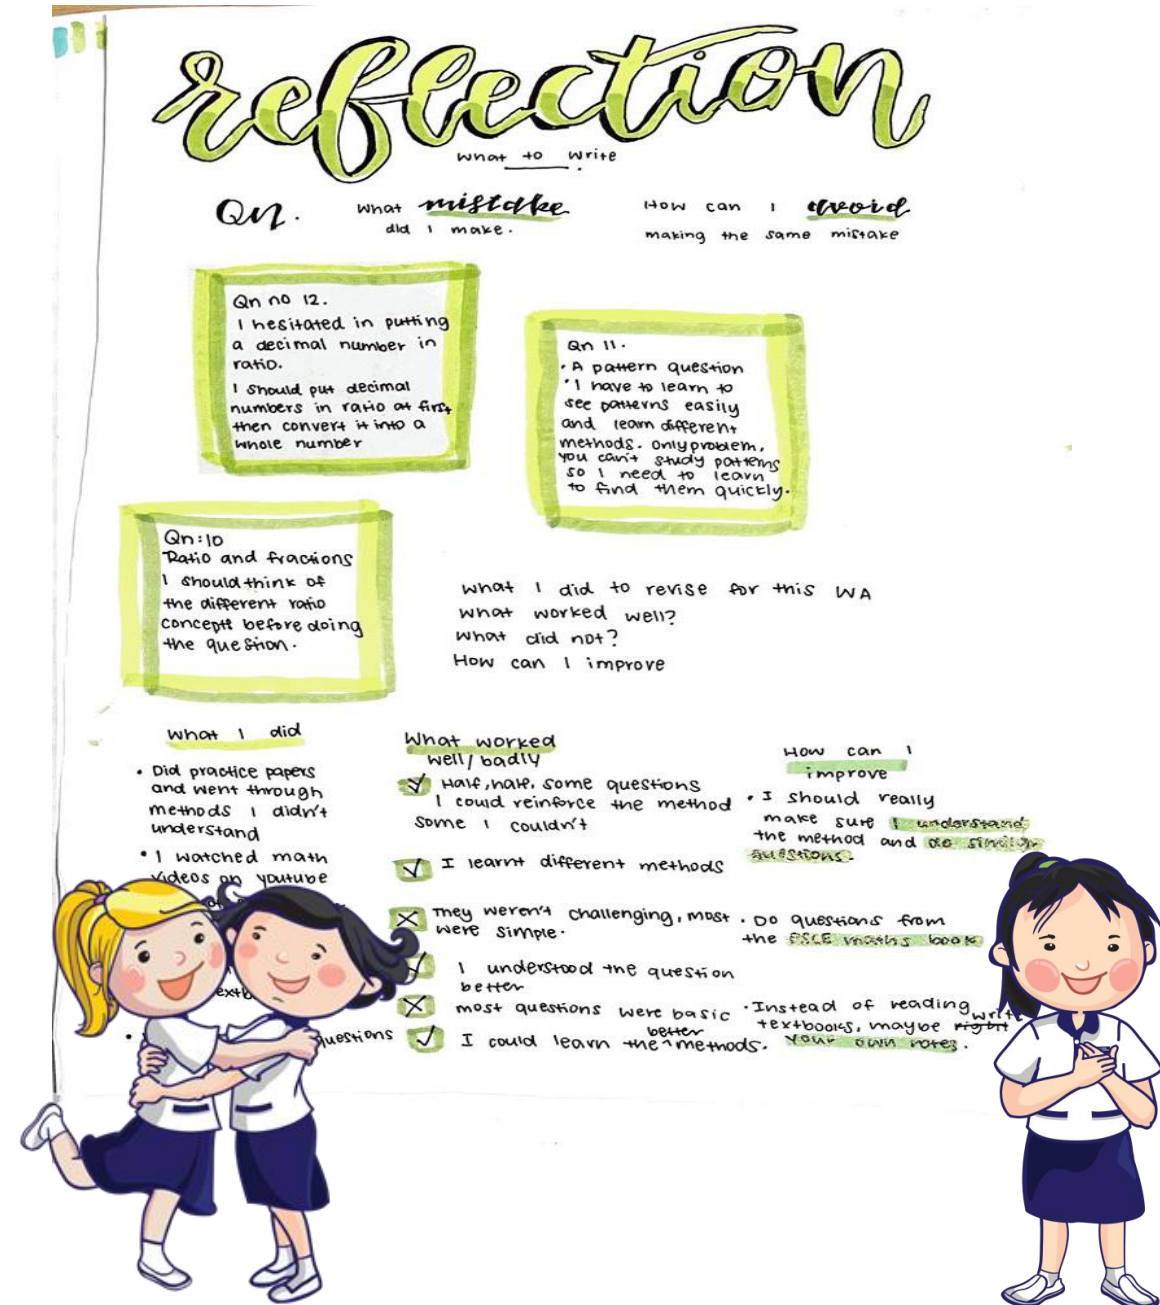 reflection
What to write
Qn.
What mistake
did I make.
How can I avoid
making the same mistake
Qn no 12.
I hesitated in putting
a decimal number in
ratio.
I should put decimal
numbers in ratio at first
then convert it into a
whole number
Qn 11.
• A pattern question
• I have to learn to
see patterns easily
and learn different
methods. Only problem,
you can't study patterns
so I need to learn
to find them quickly.
Qn:10
Ratio and fractions
I should think of
the different ratio
concept before doing
the question.
What I did to revise for this WA
What worked well?
What did not?
How can I improve
What I did
• Did practice papers
and went through
methods I didn't
understand
• I watched math
videos on youtube
questions
What worked
well/badly
Half, half, some questions
I could reinforce the method
some I couldn't
I learnt different methods
They weren't challenging, most
were simple.
I understood the question
better
most questions were basic
better
I could learn the ^ methods.
How can I
improve
• I should really
make sure I understand
the method and do similar
questions.
• Do questions from
the PSLE maths book
• Instead of reading
write
textbooks, maybe right
your own notes.